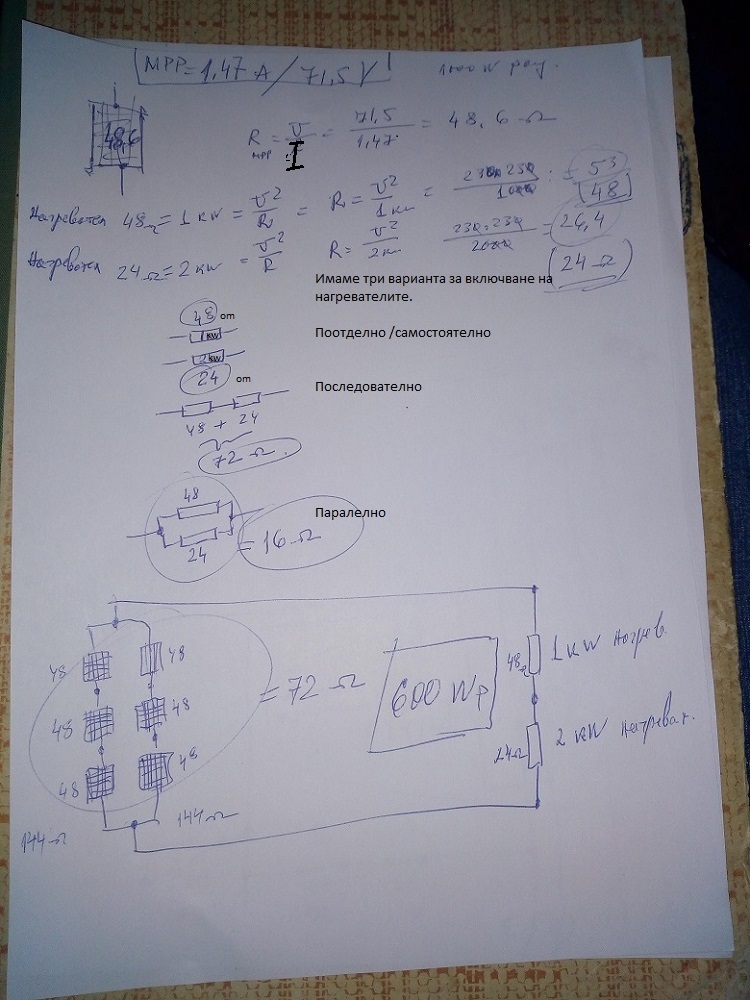 MPP = 1,47 A / 71,5 V
48,6
R MPP = U/I = 71,5/1,47 = 48,6 Ω
Нагревател 48Ω = 1 kW = U²/R = R = U²/1kw = 230.230/1000 = 53
(48)
Нагревател 24Ω = 2 kW = U²/R R = U²/2kw 230.230/2000 = 26,4
(24 Ω)
Имаме три варианта за включване на
нагревателите.
48 om
1 KW
Поотделно /самостоятелно
2 KW
24 om
Последователно
48 + 24
72 Ω
48
Паралелно
24
= 16 Ω
48 48
48 48
48 48
144 Ω 144 Ω
= 72 Ω
600 Wp
48Ω 1 KW нагрев.
24Ω 2 KW нагреват.